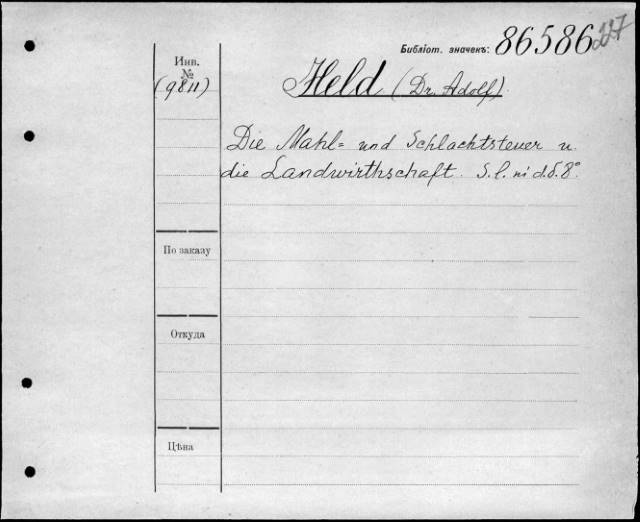 Библіот. значекъ: 86586 227
Инв.
№
(9811)
Held (Dr. Adolf).
Die Mahl= und Schlachtsteuer u.
die Landwirthschaft. S. l. ni d. 8°.
По заказу
Откуда
Цѣна